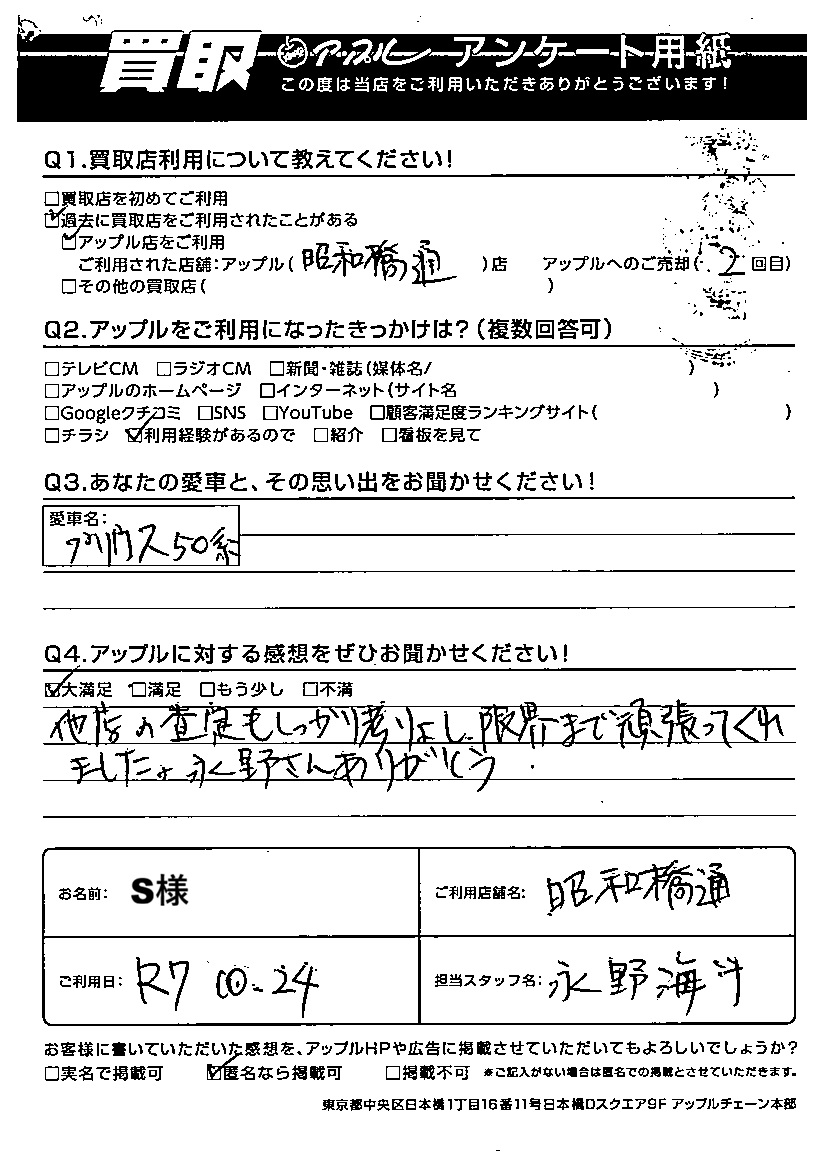 買取 アップル アンケート用紙
この度は当店をご利用いただきありがとうございます!
Q1.買取店利用について教えてください!
□買取店を初めてご利用
☑過去に買取店をご利用されたことがある
☑アップル店をご利用
ご利用された店舗:アップル( 昭和橋通 )店 アップルへのご売却( 2 回目)
□その他の買取店( )
Q2.アップルをご利用になったきっかけは?(複数回答可)
□テレビCM □ラジオCM □新聞・雑誌(媒体名/ )
□アップルのホームページ □インターネット(サイト名 )
□Googleクチコミ □SNS □YouTube □顧客満足度ランキングサイト( )
□チラシ ☑利用経験があるので □紹介 □看板を見て
Q3.あなたの愛車と、その思い出をお聞かせください!
愛車名:
プリウス50系
Q4.アップルに対する感想をぜひお聞かせください!
☑大満足 □満足 □もう少し □不満
他店の査定もしっかり考りょし、限界まで頑張ってくれ
ましたよ永野さんありがとう
お名前: S様 ご利用店舗名: 昭和橋通
ご利用日: R7 10.24 担当スタッフ名: 永野海斗
お客様に書いていただいた感想を、アップルHPや広告に掲載させていただいてもよろしいでしょうか?
□実名で掲載可 ☑匿名なら掲載可 □掲載不可 ※ご記入がない場合は匿名での掲載とさせていただきます。
東京都中央区日本橋1丁目16番11号日本橋Dスクエア9F アップルチェーン本部